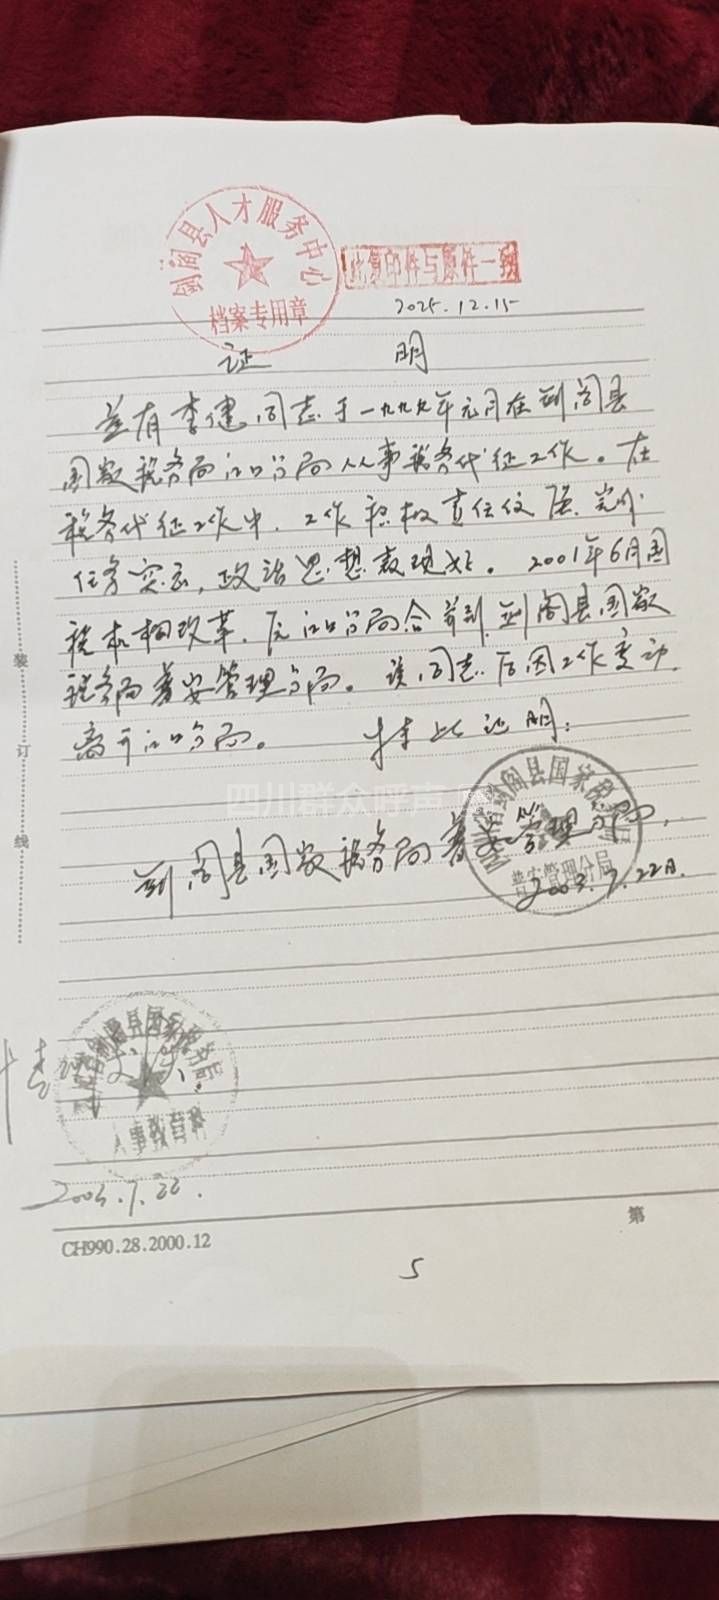 剑阁县人才服务中心
档案专用章
此复印件与原件一致
2025.12.15
证 明
兹有李健同志于一九九九年元月在剑阁县
国家税务局江口分局从事税务代征工作。在
税务代征工作中，工作积极责任心强，完成
任务突出，政治思想表现好。2001年6月国
税机构改革，原江口分局合并到剑阁县国家
税务局普安管理分局。该同志后因工作变动
离开江口分局。 特此证明：
四川群众呼声网
剑阁县国家税务局普安管理分局
普安管理分局
2003.7.22日.
剑阁县国家税务局
人事教育科
2003.7.22.
装
订
线
CH990.28.2000.12
第
5